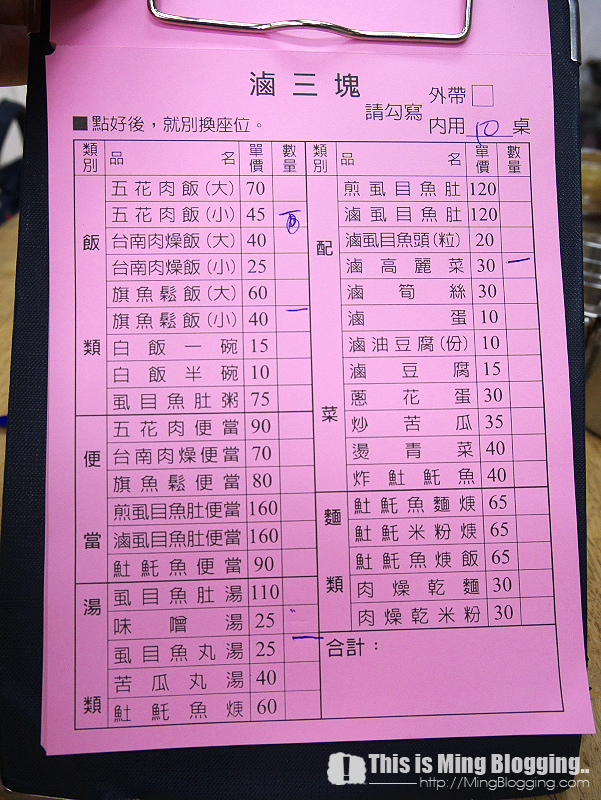 滷三塊
外帶□
請勾寫
■點好後，就別換座位。
內用 10 桌
類別 品名 單價 數量
飯類
五花肉飯(大) 70
五花肉飯(小) 45
台南肉燥飯(大) 40
台南肉燥飯(小) 25
旗魚鬆飯(大) 60
旗魚鬆飯(小) 40 一
白飯一碗 15
白飯半碗 10
虱目魚肚粥 75
便當
五花肉便當 90
台南肉燥便當 70
旗魚鬆便當 80
煎虱目魚肚便當 160
滷虱目魚肚便當 160
𩵚魠魚便當 90
湯類
虱目魚肚湯 110
味噌湯 25
虱目魚丸湯 25 一
苦瓜丸湯 40
𩵚魠魚焿 60
類別 品名 單價 數量
配菜
煎虱目魚肚 120
滷虱目魚肚 120
滷虱目魚頭(粒) 20
滷高麗菜 30 一
滷筍絲 30
滷蛋 10
滷油豆腐(份) 10
滷豆腐 15
蔥花蛋 30
炒苦瓜 35
燙青菜 40
炸𩵚魠魚 40
麵類
𩵚魠魚麵焿 65
𩵚魠米粉焿 65
𩵚魠魚焿飯 65
肉燥乾麵 30
肉燥乾米粉 30
合計：
This is Ming Blogging..
http://MingBlogging.com